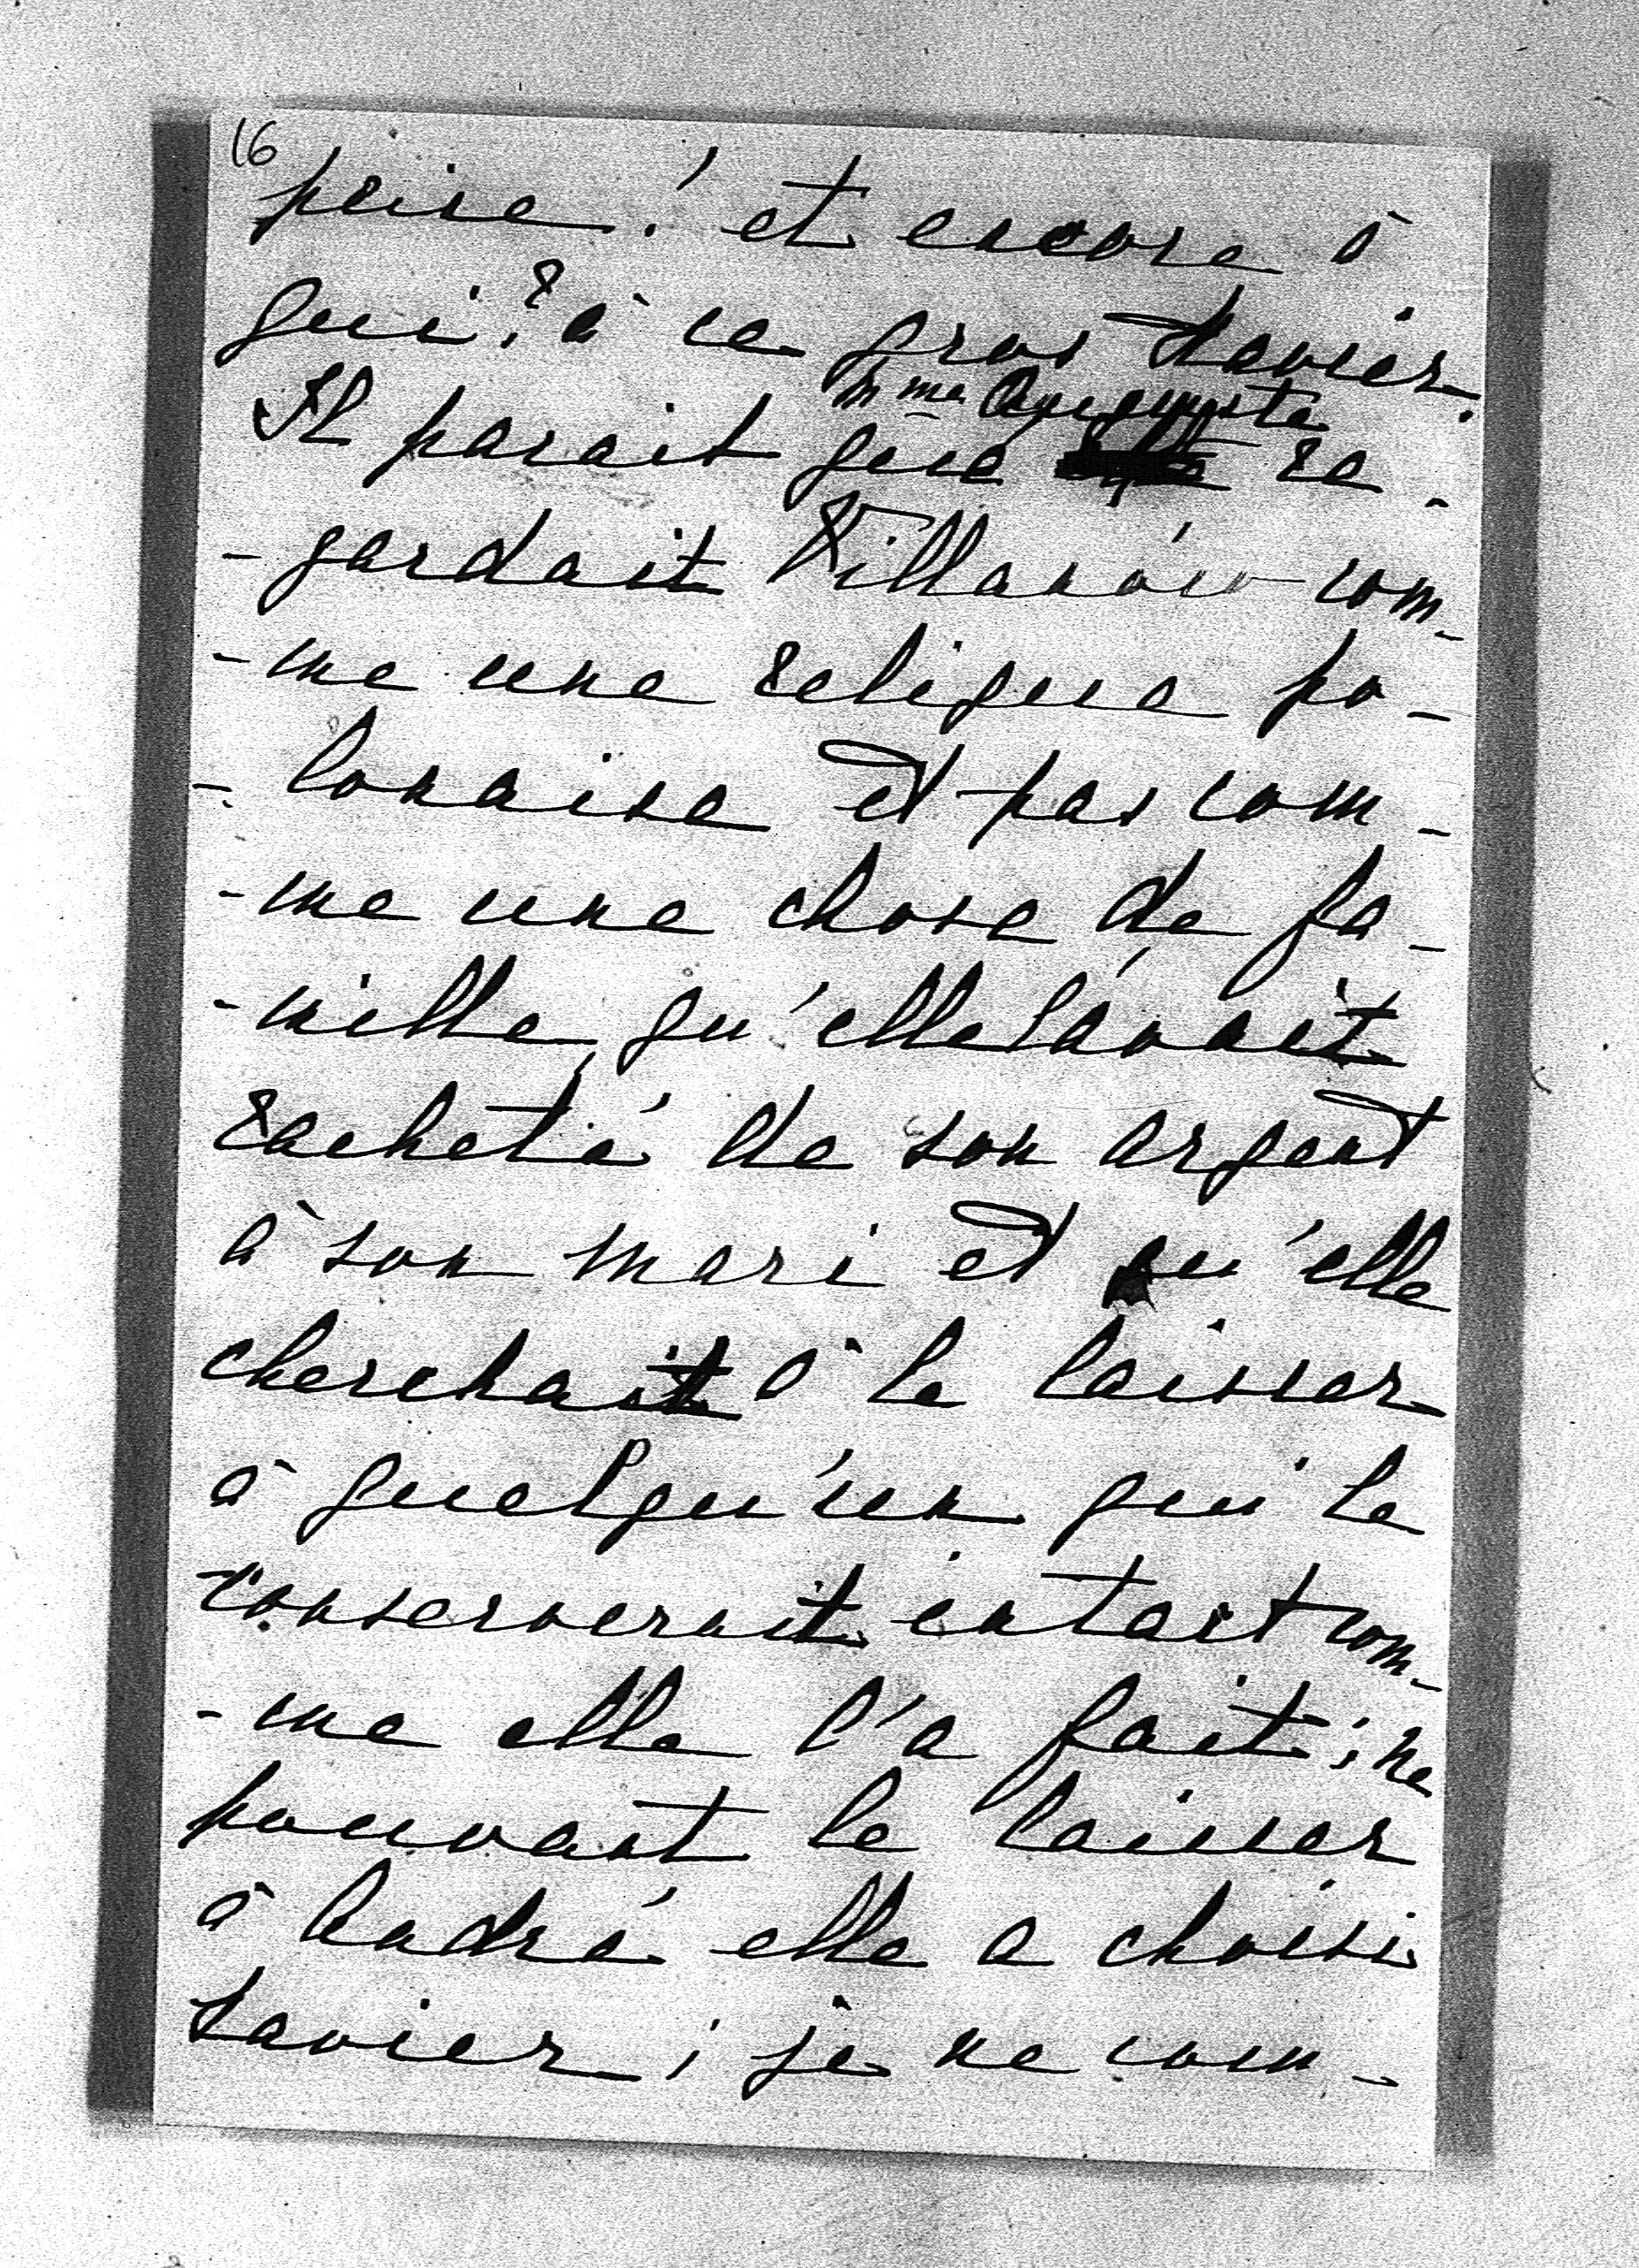 16
peine! et encore à
qui? à ce gros Xavier.
Mme Augusta
Il parait que re-
-gardait Villanów com-
-me une relique po-
-lonaise et pas com-
-me une chose de fa-
-mille, qu'elle l'avait
racheté de son argent
à son mari et qu'elle
cherchait à le laisser
à quelqu'un qui le
conserverait intact com-
-me elle l'a fait; ne
pouvant le laisser
à André elle a choisi
Xavier; je ne com-